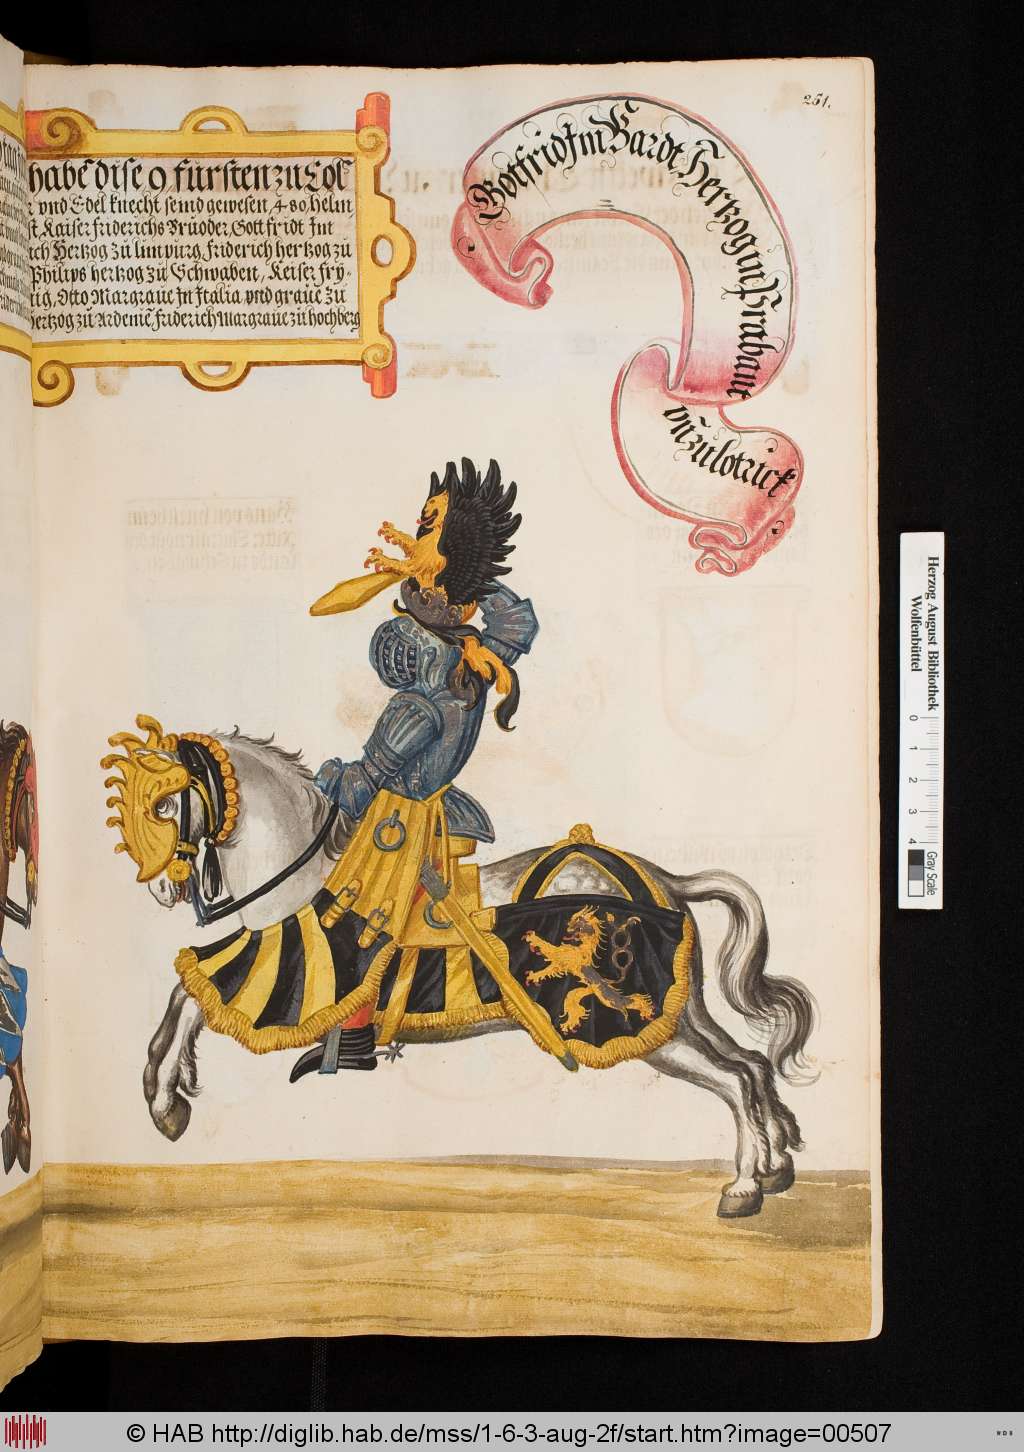 251.
habē dise 9 fürsten zu Cöl
vnd Edel knecht seind gewesen, 480, helm
st, Kaiser friderichs Prüoder, Gottfridt Im
ich Hertzog zů limpurg, friderich hertzog zů
Philips hertzog zů Schwaben, Keiser fry-
tig, Otto Margraue In Italia vnd graue zů
Hertzog zů Ardenie, friderich margraue zů hochberg
Gotfrid Im Bardt, Hertzog in Prabant
vñ zu lotrick
Herzog August Bibliothek
Wolfenbüttel
0 1 2 3 4
Gray Scale
© HAB http://diglib.hab.de/mss/1-6-3-aug-2f/start.htm?image=00507
WDB